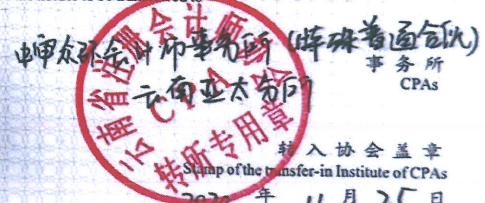 中审众环会计师事务所(特殊普通合伙)
事务所
CPAs
云南亚太分所
云南省注册会计师协会
CPA
转所专用章
转入协会盖章
Stamp of the transfer-in Institute of CPAs
年 11 月 25 日